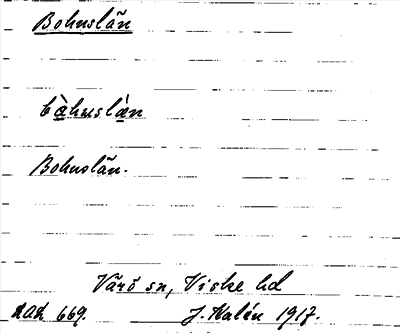 Bohuslän
bàhuslǽn
Bohuslän.
Värö sn, Viske hd
DAGL 669. J. Kalén 1917.